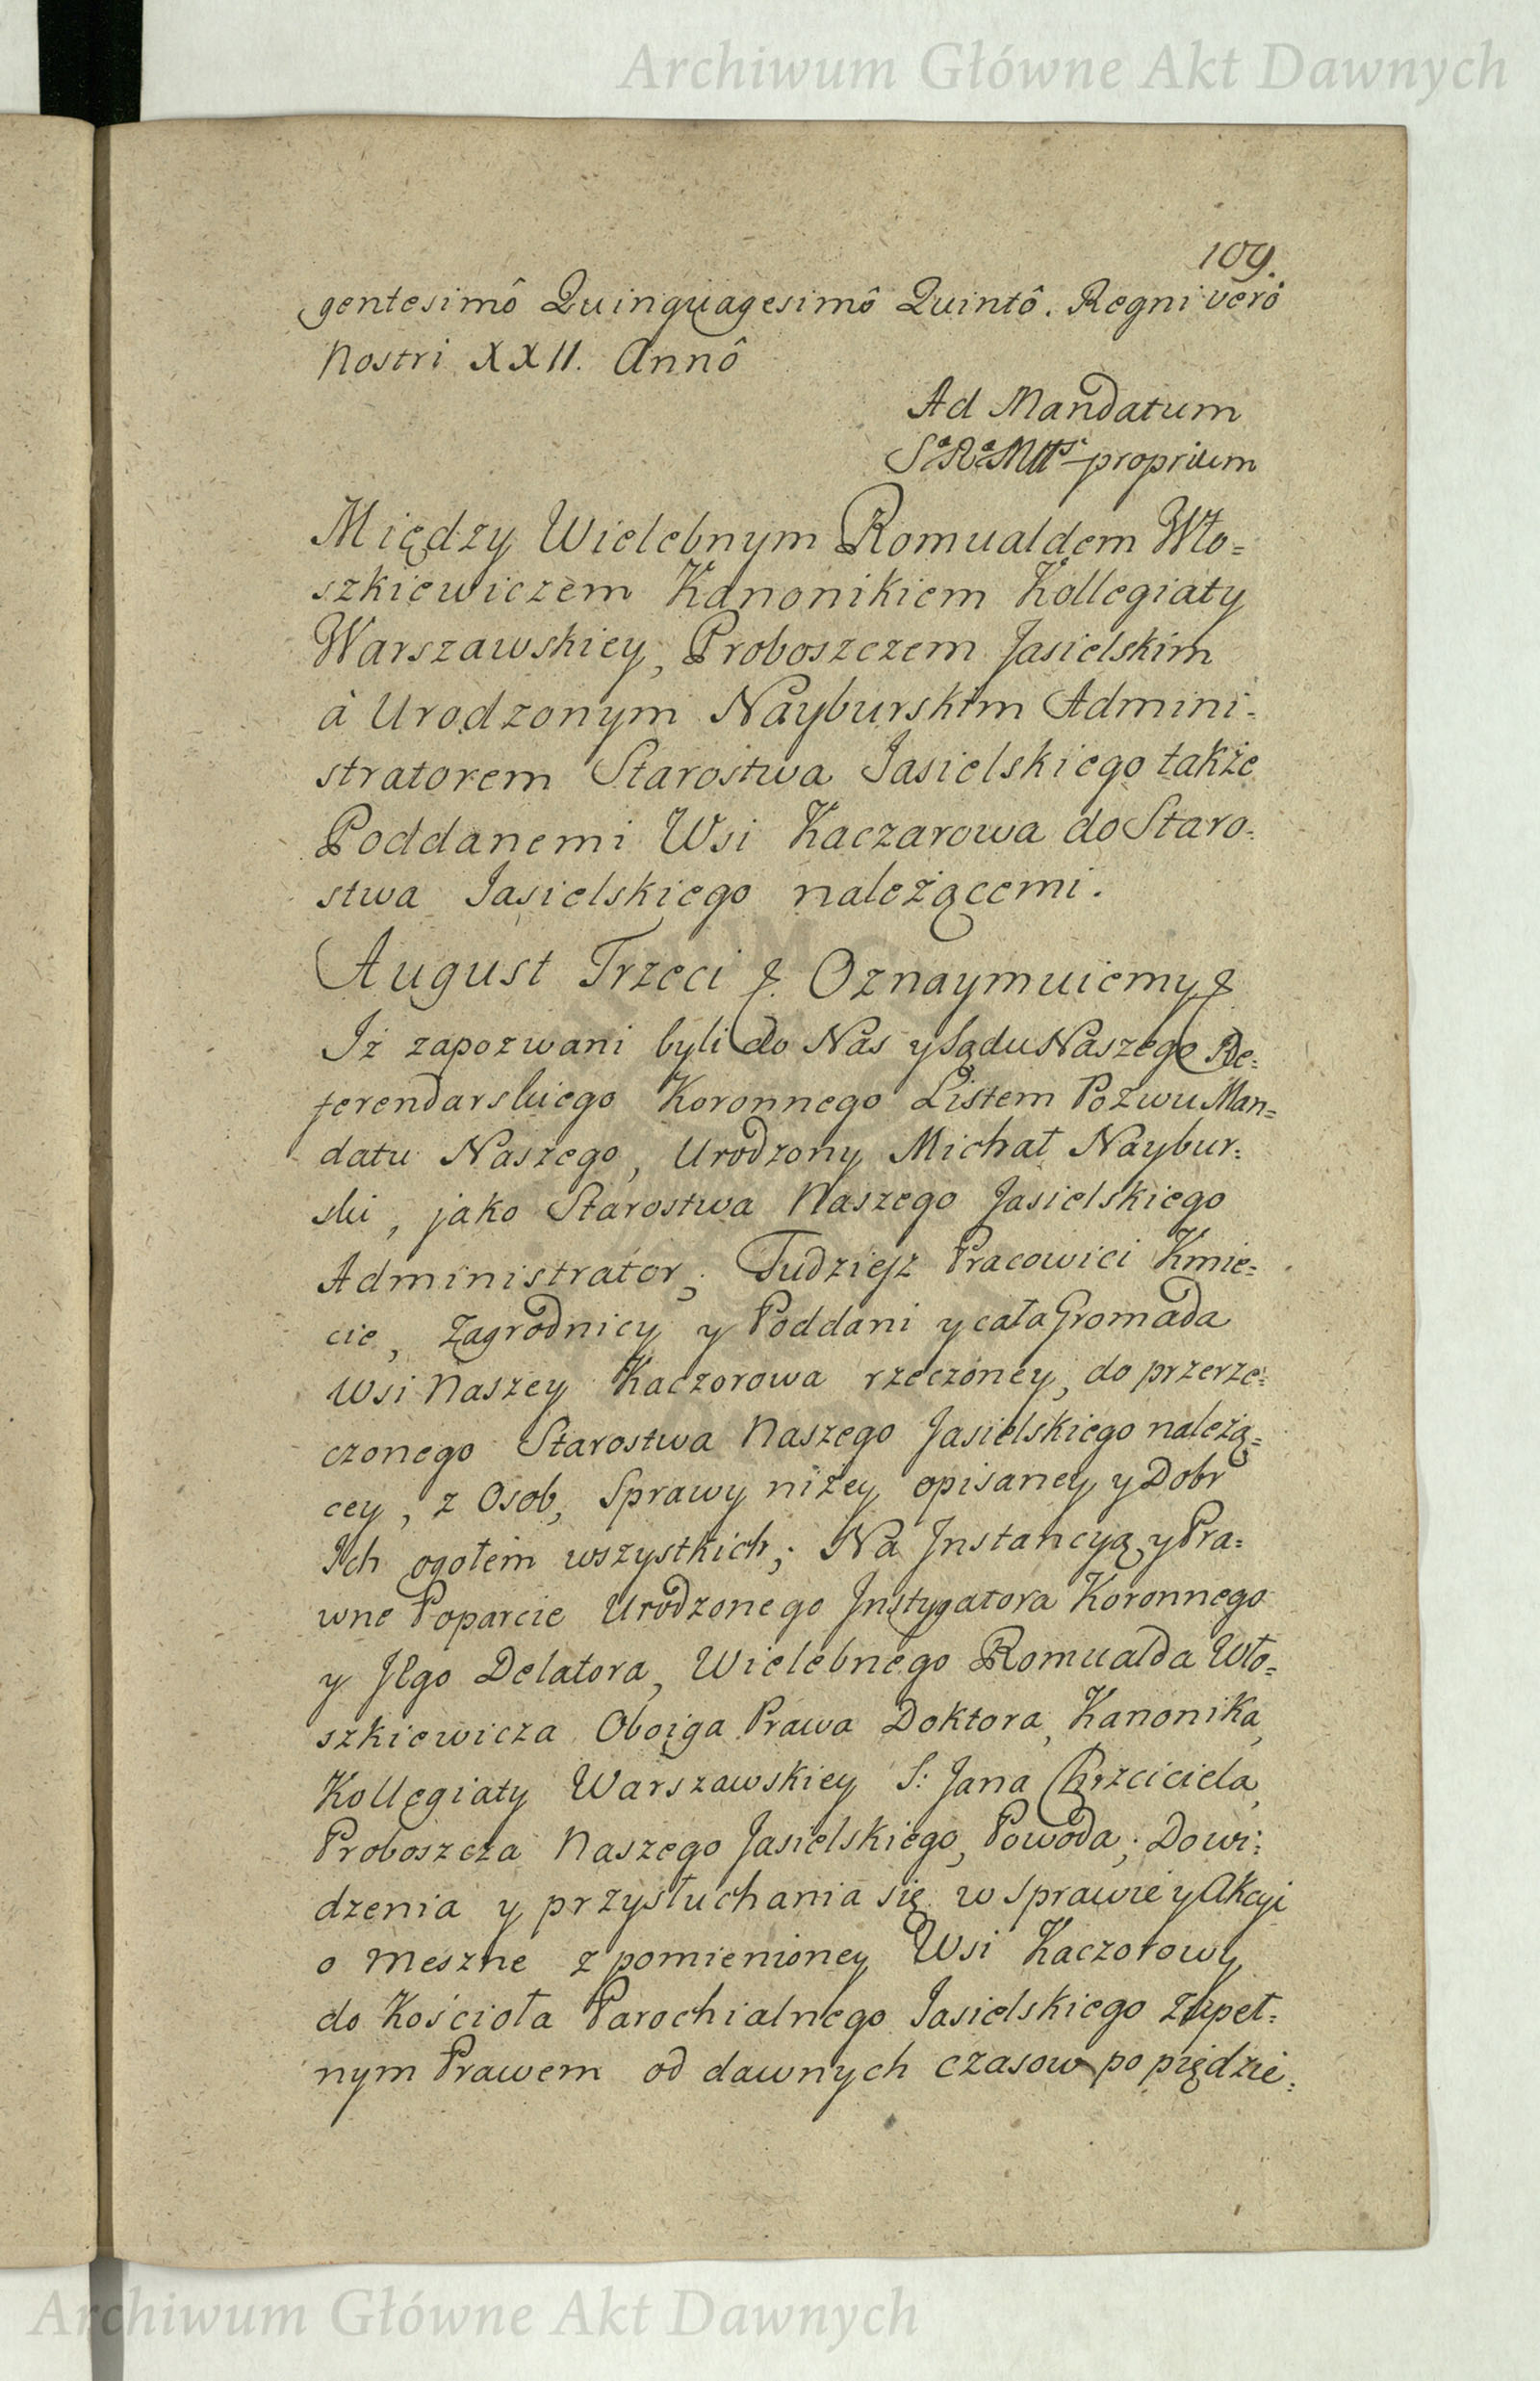 Archiwum Główne Akt Dawnych
109.
gentesimô Quinquagesimô Quintô. Regni verò
Nostri XXII. Annô
Ad Mandatum
proprium
Między Wielebnym Romualdem Wło=
szkiewiczem Kanonikiem Kollegiaty
Warszawskiey, Proboszczem Jasielskim
à Urodzonym Nayburskim Admini=
stratorem Starostwa Jasielskiego także
Poddanemi Wsi Kaczarowa do Staro=
stwa Jasielskiego należącemi.
August Trzeci &. Oznaymuiemy &
Iż zapozwani byli do Nas y Sądu Naszego Re=
ferendarskiego Koronnego Listem Pozwu Man=
datu Naszego, Urodzony Michał Naybur=
ski, jako Starostwa Naszego Jasielskiego
Administrator; Tudziesz Pracowici Kmie=
cie, Zagrodnicy y Poddani y cała Gromada
Wsi Naszey Kaczorowa rzeczoney, do przerze=
czonego Starostwa Naszego Jasielskiego należą=
cey, z Osob, Sprawy niżey opisaney y Dobr
Ich ogołem wszystkich; Na Jnstancyą y Pra=
wne Poparcie Urodzonego Jnstygatora Koronnego
y JEgo Delatora, Wielebnego Romualda Wło=
szkiewicza Oboiga Prawa Doktora, Kanonika,
Kollegiaty Warszawskiey S: Jana Chrzciciela,
Proboszcza Naszego Jasielskiego, Powoda; Dowi=
dzenia y przysłuchania się w Sprawie y Akcyi
o Meszne z pomienioney Wsi Kaczorowy
do Kościoła Parochialnego Jasielskiego zupeł=
nym Prawem od dawnych czasow po piędzie=
Archiwum Główne Akt Dawnych